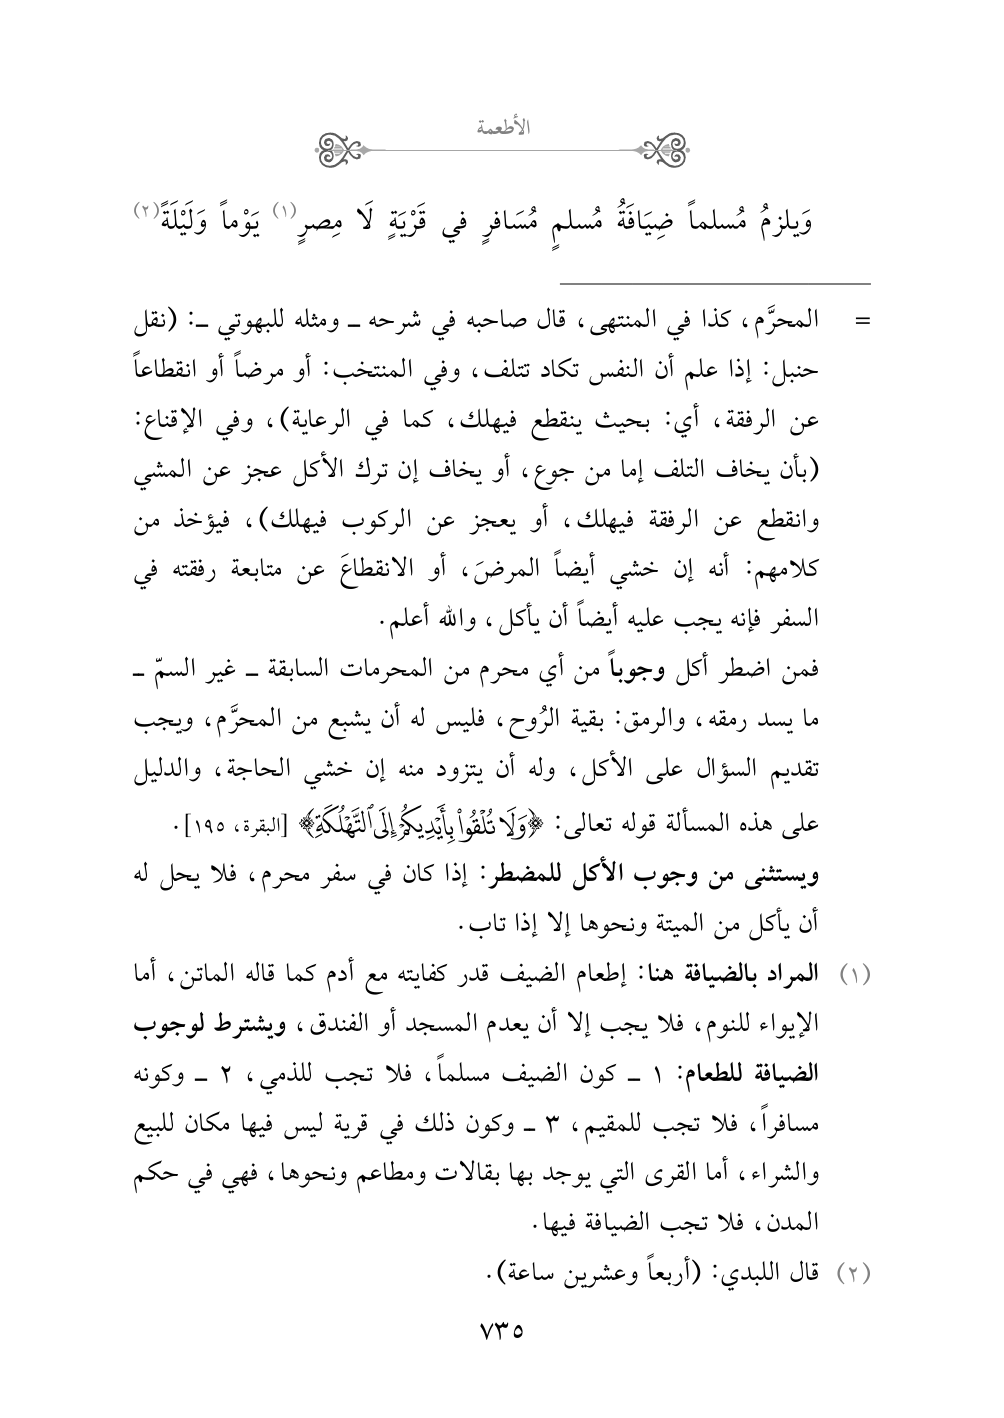 الأطعمة
وَيلزمُ مُسلماً ضِيَافَةُ مُسلمٍ مُسَافرٍ في قَرْيَةٍ لَا مِصرٍ(١) يَوْماً وَلَيْلَةً(٢)
= المحرَّم، كذا في المنتهى، قال صاحبه في شرحه ـ ومثله للبهوتي ـ: (نقل
حنبل: إذا علم أن النفس تكاد تتلف، وفي المنتخب: أو مرضاً أو انقطاعاً
عن الرفقة، أي: بحيث ينقطع فيهلك، كما في الرعاية)، وفي الإقناع:
(بأن يخاف التلف إما من جوع، أو يخاف إن ترك الأكل عجز عن المشي
وانقطع عن الرفقة فيهلك، أو يعجز عن الركوب فيهلك)، فيؤخذ من
كلامهم: أنه إن خشي أيضاً المرضَ، أو الانقطاعَ عن متابعة رفقته في
السفر فإنه يجب عليه أيضاً أن يأكل، والله أعلم.
فمن اضطر أكل وجوباً من أي محرم من المحرمات السابقة ـ غير السمّ ـ
ما يسد رمقه، والرمق: بقية الرُوح، فليس له أن يشبع من المحرَّم، ويجب
تقديم السؤال على الأكل، وله أن يتزود منه إن خشي الحاجة، والدليل
على هذه المسألة قوله تعالى: ﴿وَلَا تُلْقُوا۟ بِأَيْدِيكُمْ إِلَى ٱلتَّهْلُكَةِ﴾ [البقرة، ١٩٥].
ويستثنى من وجوب الأكل للمضطر: إذا كان في سفر محرم، فلا يحل له
أن يأكل من الميتة ونحوها إلا إذا تاب.
(١) المراد بالضيافة هنا: إطعام الضيف قدر كفايته مع أدم كما قاله الماتن، أما
الإيواء للنوم، فلا يجب إلا أن يعدم المسجد أو الفندق، ويشترط لوجوب
الضيافة للطعام: ١ ـ كون الضيف مسلماً، فلا تجب للذمي، ٢ ـ وكونه
مسافراً، فلا تجب للمقيم، ٣ ـ وكون ذلك في قرية ليس فيها مكان للبيع
والشراء، أما القرى التي يوجد بها بقالات ومطاعم ونحوها، فهي في حكم
المدن، فلا تجب الضيافة فيها.
(٢) قال اللبدي: (أربعاً وعشرين ساعة).
٧٣٥